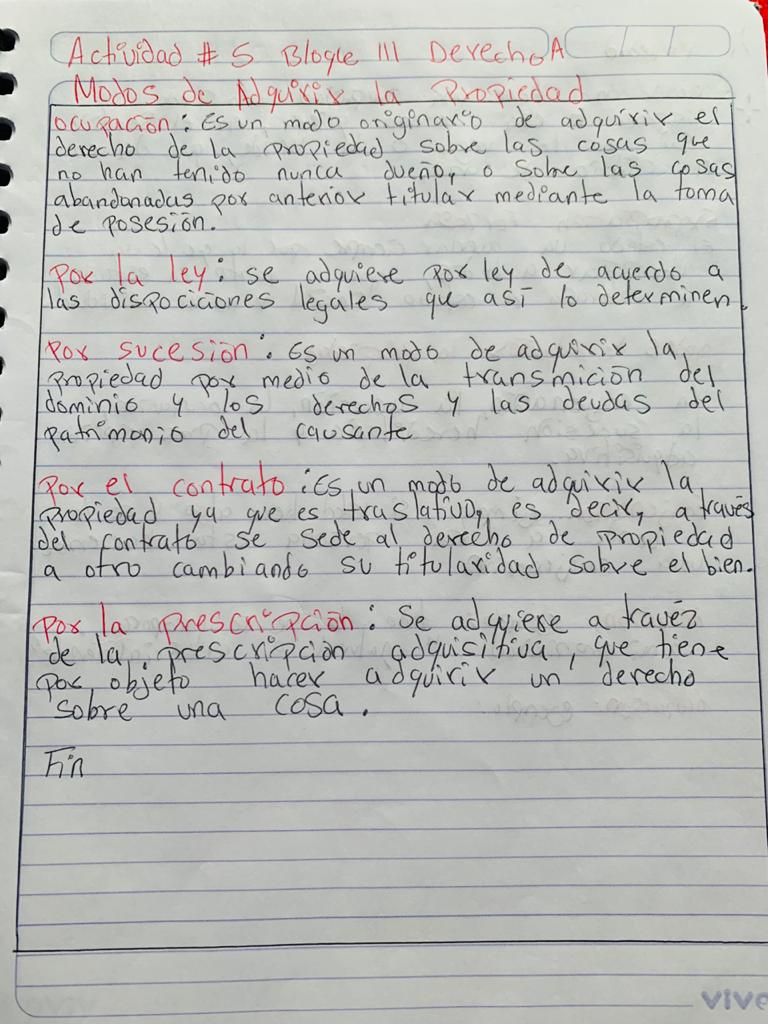 Actividad # 5 Bloque III Derecho A
Modos de Adquirir la Propiedad
Ocupación: Es un modo originario de adquirir el
derecho de la propiedad sobre las cosas que
no han tenido nunca dueño, o sobre las cosas
abandanadas por anterior titular mediante la toma
de posesión.
Por la ley: se adquiere por ley de acuerdo a
las dispociciones legales que así lo determinen.
Por sucesión: Es un modo de adquirir la
propiedad por medio de la transmición del
dominio y los derechos y las deudas del
patrimonio del causante
Por el contrato: Es un modo de adquirir la
propiedad ya que es traslativo, es decir, a través
del contrato se sede al derecho de propiedad
a otro cambiando su titularidad sobre el bien.
Por la prescripción: Se adquiere a travéz
de la prescripción adquisitiva, que tiene
por objeto hacer adquirir un derecho
sobre una cosa.
Fin
vive